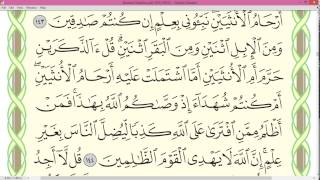 أَرْحَامُ ٱلْأُنثَيَيْنِ نَبِّـُٔونِى بِعِلْمٍ إِن كُنتُمْ صَـٰدِقِينَ ١٤٣
وَمِنَ ٱلْإِبِلِ ٱثْنَيْنِ وَمِنَ ٱلْبَقَرِ ٱثْنَيْنِ قُلْ ءَآلذَّكَرَيْنِ
حَرَّمَ أَمِ ٱلْأُنثَيَيْنِ أَمَّا ٱشْتَمَلَتْ عَلَيْهِ أَرْحَامُ ٱلْأُنثَيَيْنِ
أَمْ كُنتُمْ شُهَدَآءَ إِذْ وَصَّىٰكُمُ ٱللَّهُ بِهَـٰذَا فَمَنْ
أَظْلَمُ مِمَّنِ ٱفْتَرَىٰ عَلَى ٱللَّهِ كَذِبًا لِّيُضِلَّ ٱلنَّاسَ بِغَيْرِ
عِلْمٍ إِنَّ ٱللَّهَ لَا يَهْدِى ٱلْقَوْمَ ٱلظَّـٰلِمِينَ ١٤٤ قُل لَّآ أَجِدُ